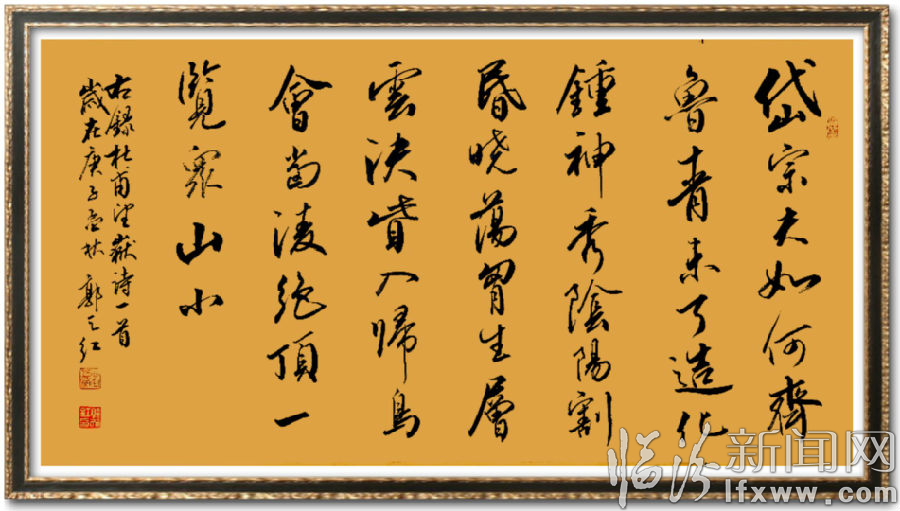 岱宗夫如何齊
魯青未了造化
鍾神秀陰陽割
昏曉蕩胷生層
雲決眥入歸鳥
會當凌絕頂一
覽眾山小
右錄杜甫望嶽詩一首
歲在庚子金秋 郭红
临汾新闻网
lfxww.com